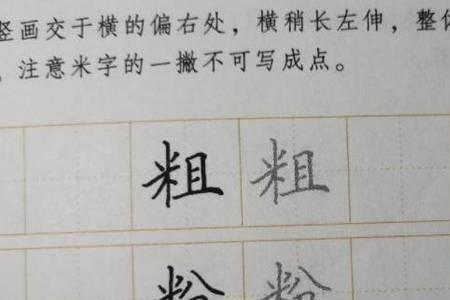 竖画交于横的偏右处，横稍长左伸，整体
，注意米字的一撇不可写成点。
粗 粗
粉 粉